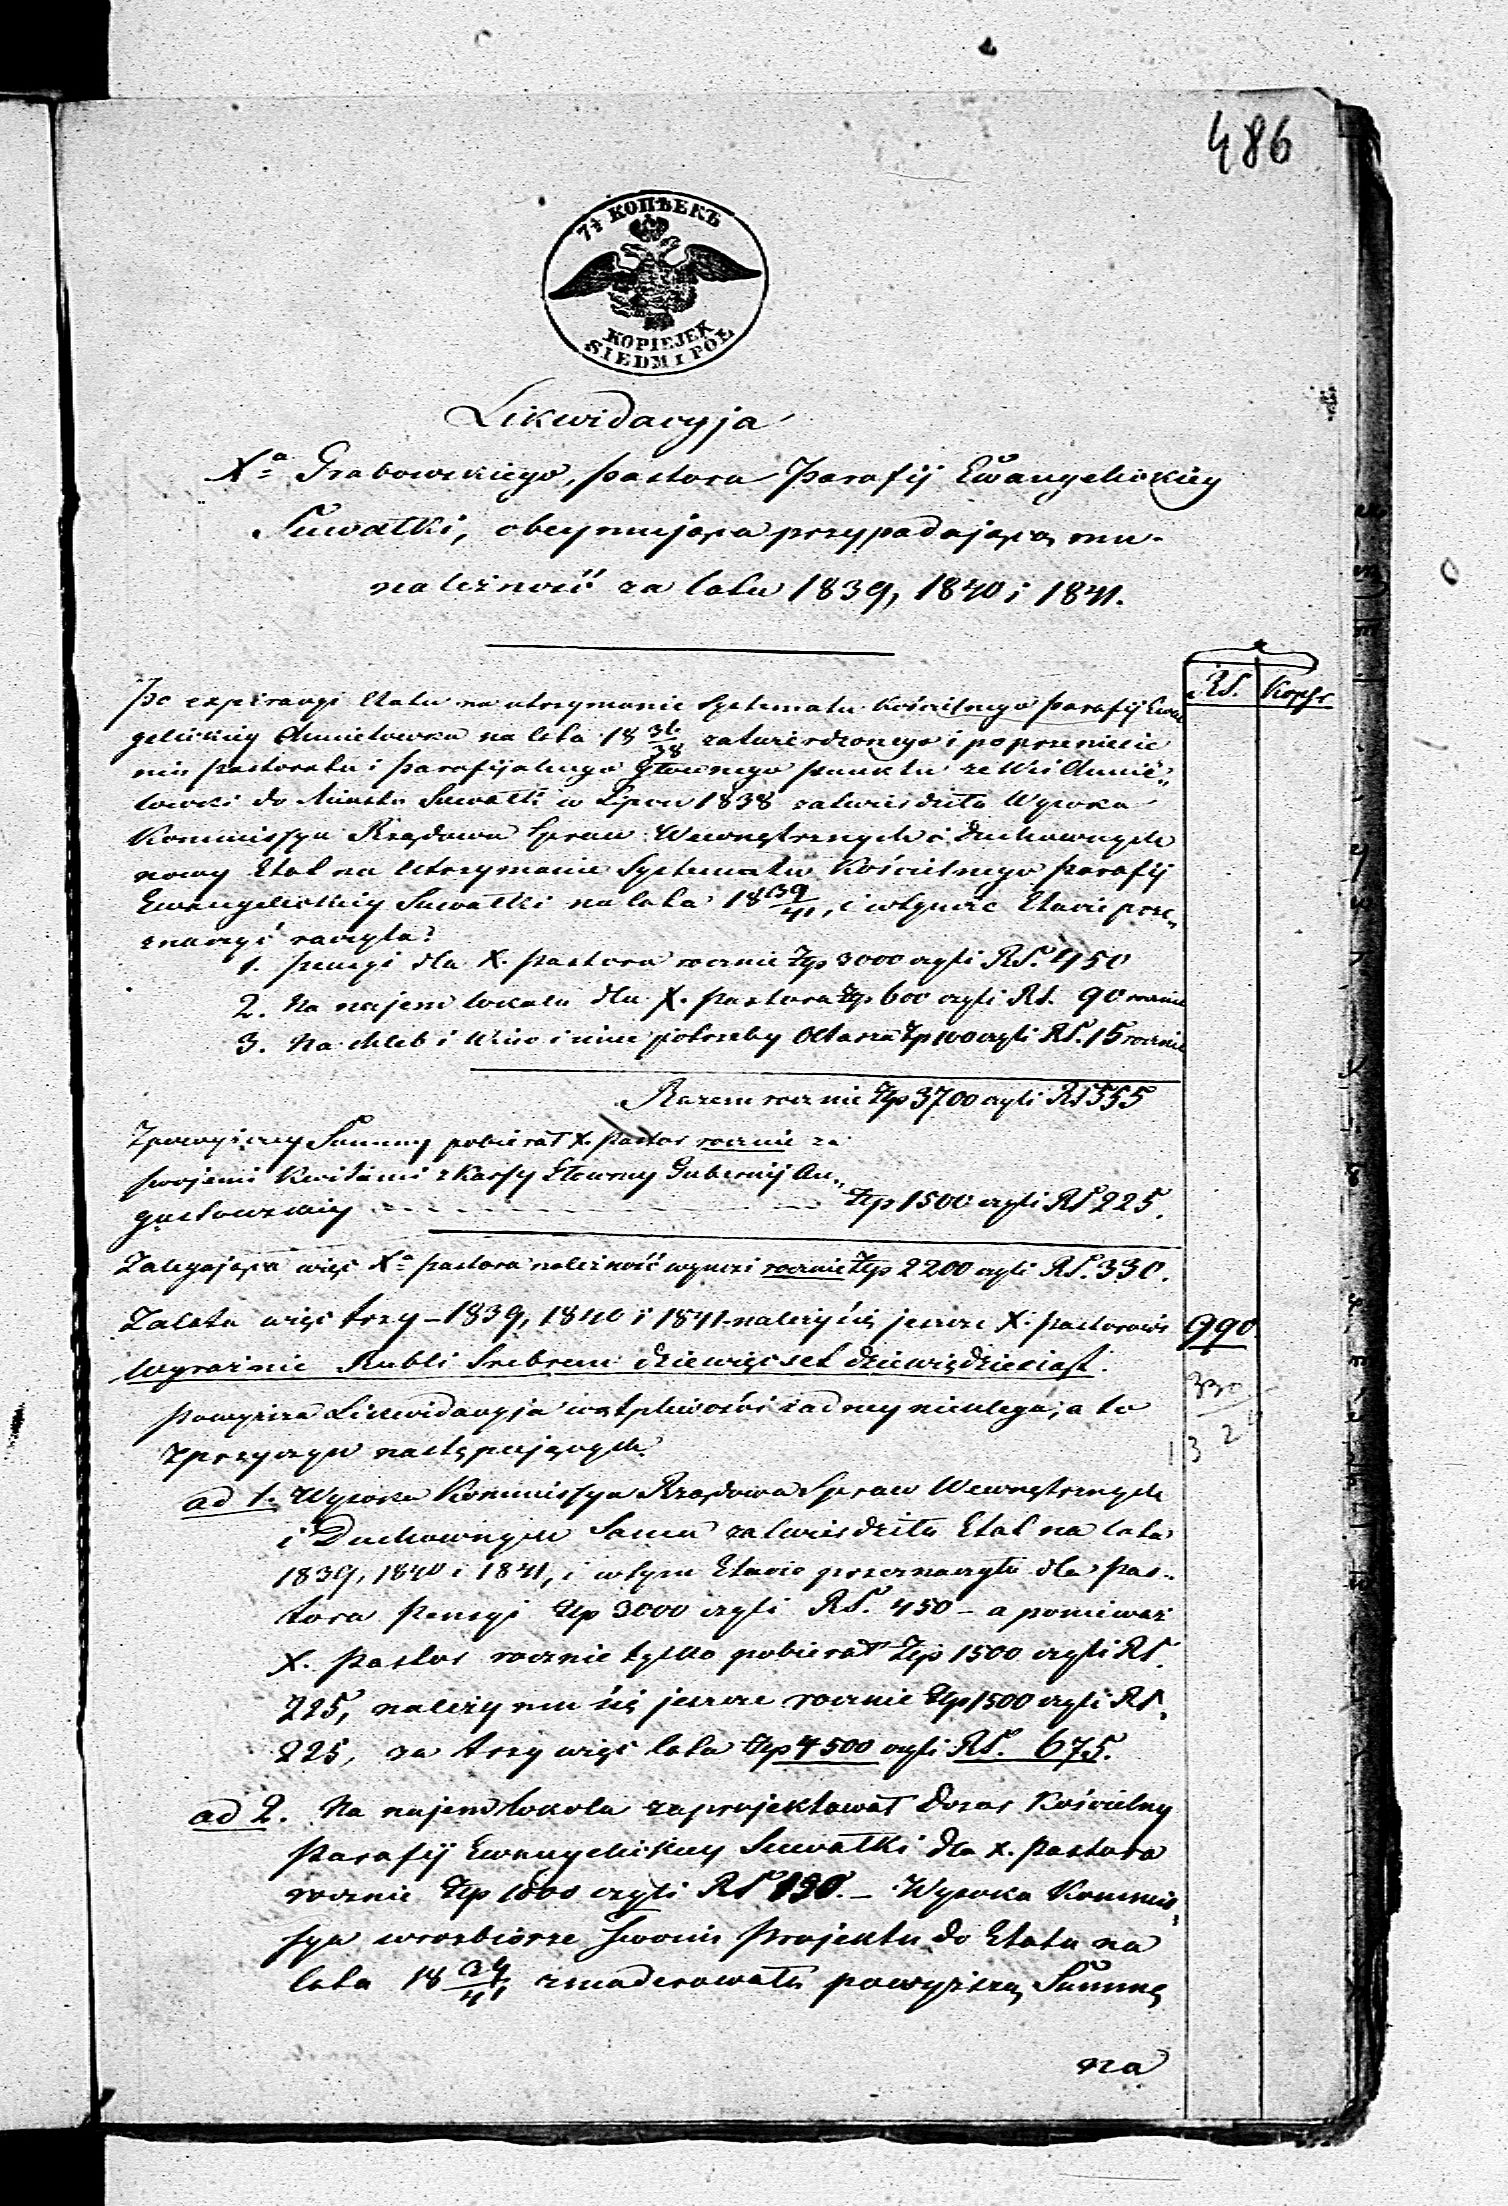 486
7½ КОПѢЕКЪ
KOPIEJEK
SIEDM I PÓŁ
Likwidacyja
Xa Grabowskiego, pastora Parafij Ewangelickiey
Suwałki, obeymująca przypadającą mu
należność za lata 1839, 1840 i 1841.
RS. Kopk
Po expiracyi Etatu na utrzymanie Systematu Kościelnego parafij Ewan
gelickiey Chmielowka na lata 18 36/38 zatwierdzonego i po przeniesie
niu pastoratu i parafijalnego głównego punktu ze Wsi Chmie„
lowki do Miasta Suwałk w Lipcu 1838 zatwierdziła Wysoka
Kommissya Rządowa Spraw Wewnętrznych i Duchownych
nowy Etat na utrzymanie Systematu Kościelnego parafij
Ewangelickiey Suwałki na lata 18 39/41, i w tymże Etacie prze„
znaczyć raczyła:
1. pensyi dla X. pastora rocznie Złp 3000 czyli RS. 450
2. Na najem lokalu dla X. pastora Złp 600 czyli RS. 90 rocznie
3. Na chleb i wino i inne potrzeby Ołtarza Złp 100 czyli RS. 15 rocznie
Razem rocznie Złp 3700 czyli RS 555
Z powyższey Summy pobierał X. pastor rocznie za
swojemi kwitami z Kassy Głowney Gubernij Au„
gustowskiey Złp 1500 czyli RS 225.
Zalegająca więc Xa pastora należność wynosi rocznie Złp 2200 czyli RS. 330.
Za lata więc trzy – 1839, 1840 i 1841 należy się jeszcze X. pastorowi 990
wyraźnie Rubli Srebrem dziewięćset dziewięćdziesiąt.
330
Powyższa Likwidacyja wątpliwości żadney nieulega, a to
3 2
z przyczyn następujących:
ad 1. Wysoka Kommissya Rządowa Spraw Wewnętrznych
i Duchownych Sama zatwierdziła Etat na lata
1839, 1840 i 1841, i w tym Etacie przeznaczyła dla pas„
tora pensyi Złp 3000 czyli RS. 450 – a ponieważ
X. pastor rocznie tylko pobierał Złp 1500 czyli RS.
225, należy mu się jeszcze rocznie Złp 1500 czyli RS.
225, za trzy więc lata Złp 4500 czyli RS. 675.
ad 2. Na najem lokalu zaprojektował Dozór Kościelny
Parafij Ewangelickiey Suwałki dla X. Pastora
rocznie Złp czyli RS – Wysoka Kommis„
sya w rozbiorze swoim Projektu do Etatu na
lata 18 39/41 zmoderowała powyższą Summę
na